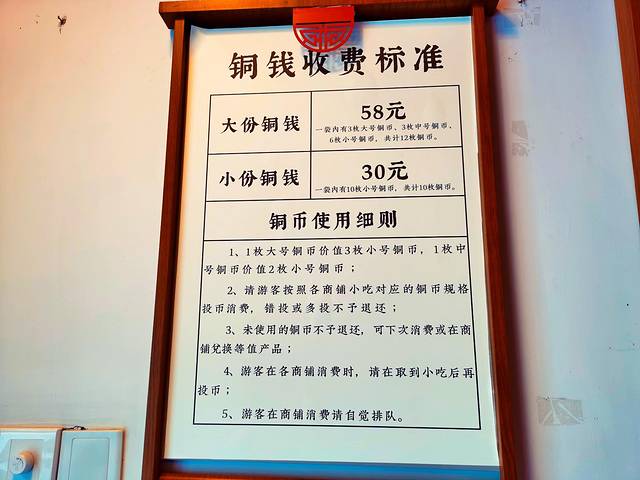 铜钱收费标准
大份铜钱
58元
一袋内有3枚大号铜币、3枚中号铜币、
6枚小号铜币，共计12枚铜币。
小份铜钱
30元
一袋内有10枚小号铜币，共计10枚铜币。
铜币使用细则
1、1枚大号铜币价值3枚小号铜币，1枚中
号铜币价值2枚小号铜币；
2、请游客按照各商铺小吃对应的铜币规格
投币消费，错投或多投不予退还；
3、未使用的铜币不予退还，可下次消费或在商
铺兑换等值产品；
4、游客在各商铺消费时，请在取到小吃后再
投币；
5、游客在商铺消费请自觉排队。